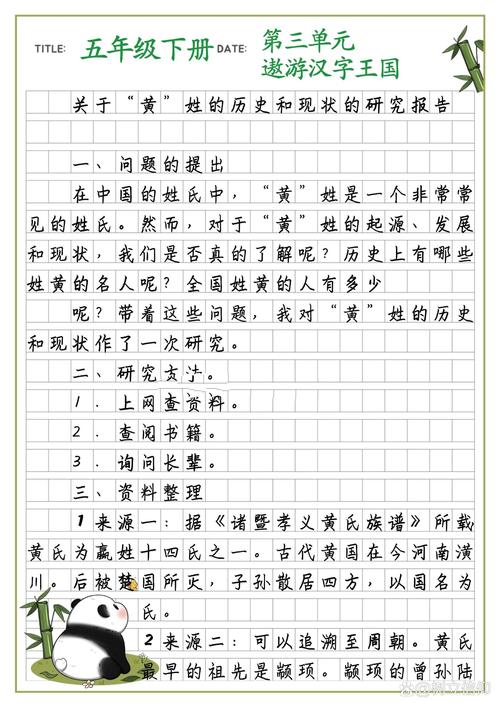 TITLE: 五年级下册 DATE: 第三单元
遨游汉字王国
关于“黄”姓的历史和现状的研究报告
一、问题的提出
在中国的姓氏中,“黄”姓是一个非常常
见的姓氏。然而,对于“黄”姓的起源、发展
和现状,我们是否真的了解呢?历史上有哪些
姓黄的名人呢?全国姓黄的人有多少
呢?带着这些问题,我对“黄”姓的历史
和现状作了一次研究。
二、研究方法。
1.上网查资料。
2.查阅书籍。
3.询问长辈。
三、资料整理
1来源一:据《诸暨孝义黄氏族谱》所载
黄氏为嬴姓十四氏之一。古代黄国在今河南潢
川。后被楚国所灭,子孙散居四方,以国名为
氏。
2来源二:可以追溯至周朝。黄氏
最早的祖先是颛顼。颛顼的曾孙陆